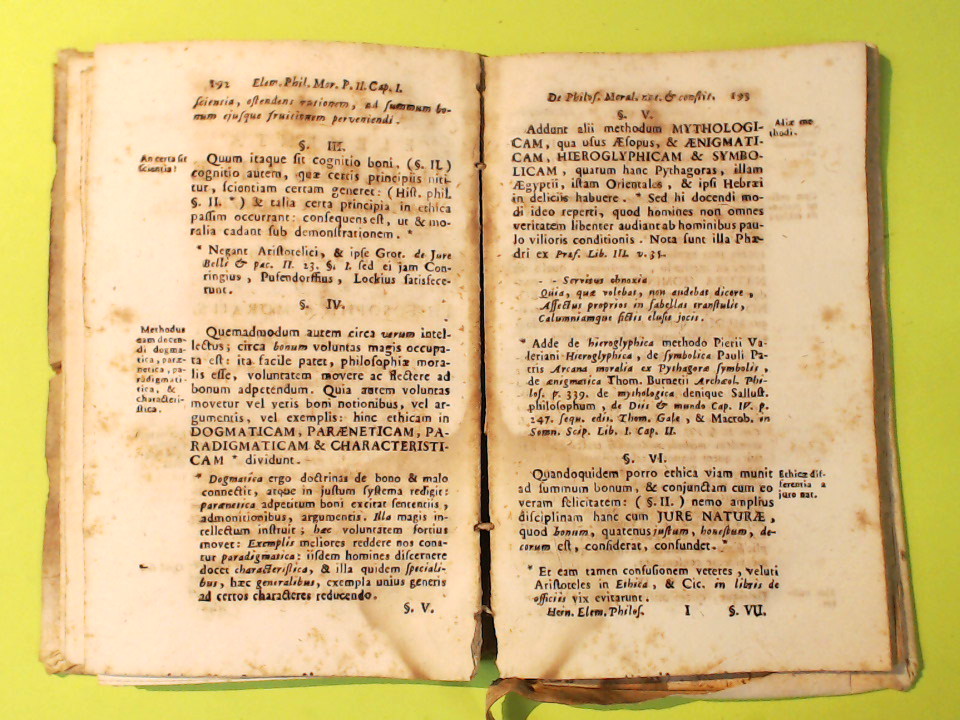 192 Elem. Phil. Mor. P. II. Cap. I.
scientia, ostendens rationem, ad summum bo-
num ejusque fruitionem perveniendi.
§. III.
An certa sit
scientia?
Quum itaque sit cognitio boni, (§. II.)
cognitio autem, quæ certis principiis niti-
tur, scientiam certam generet: (Hist. phil.
§. II. *) & talia certa principia in ethica
passim occurrant: consequens est, ut & mo-
ralia cadant sub demonstrationem. *
* Negant Aristotelici, & ipse Grot. de Jure
Belli & pac. II. 23. §. I. sed ei jam Con-
ringius, Pufendorffius, Lockius satisfece-
runt.
§. IV.
Methodus
eam docen-
di dogma-
tica, paræ-
netica, pa-
radigmati-
tica, &
characteri-
stica.
Quemadmodum autem circa verum intel-
lectus; circa bonum voluntas magis occupa-
ta est: ita facile patet, philosophiæ mora-
lis esse, voluntatem movere ac flectere ad
bonum adpetendum. Quia autem voluntas
movetur vel veris boni notionibus, vel ar-
gumentis, vel exemplis: hinc ethicam in
DOGMATICAM, PARÆNETICAM, PA-
RADIGMATICAM & CHARACTERISTI-
CAM * dividunt.
* Dogmatica ergo doctrinas de bono & malo
connectit, atque in justum systema redigit:
parænetica adpetitum boni excitat sententiis,
admonitionibus, argumentis. Illa magis in-
tellectum instruit; hæc voluntatem fortius
movet: Exemplis meliores reddere nos cona-
tur paradigmatica: iisdem homines discernere
docet characteristica, & illa quidem speciali-
bus, hæc generalibus, exempla unius generis
ad certos characteres reducendo.
§. V.
De Philos. Moral. nat. & constit. 193
§. V.
Aliæ me-
thodi.
Addunt alii methodum MYTHOLOGI-
CAM, qua usus Æsopus, & ÆNIGMATI-
CAM, HIEROGLYPHICAM & SYMBO-
LICAM, quarum hanc Pythagoras, illam
Ægyptii, istam Orientales, & ipsi Hebræi
in deliciis habuere. * Sed hi docendi mo-
di ideo reperti, quod homines non omnes
veritatem libenter audiant ab hominibus pau-
lo vilioris conditionis. Nota sunt illa Phæ-
dri ex Præf. Lib. III. v. 35.
- - Servitus obnoxia
Quia, quæ volebat, non audebat dicere,
Affectus proprios in fabellas transtulit,
Calumniamque fictis elusit jocis.
* Adde de hieroglyphica methodo Pierii Va-
leriani Hieroglyphica, de symbolica Pauli Pa-
tris Arcana moralia ex Pythagoræ symbolis,
de ænigmatica Thom. Burnetii Archæol. Phi-
los. p. 339. de mythologica denique Sallust.
philosophum, de Diis & mundo Cap. IV. p.
247. sequ. edit. Thom. Gale, & Macrob. in
Somn. Scip. Lib. I. Cap. II.
§. VI.
Ethicæ dif-
ferentia a
jure nat.
Quandoquidem porro ethica viam munit
ad summum bonum, & conjunctam cum eo
veram felicitatem: (§. II.) nemo amplius
disciplinam hanc cum JURE NATURÆ,
quod bonum, quatenus justum, honestum, de-
corum est, considerat, confundet. *
* Et eam tamen confusionem veteres, veluti
Aristoteles in Ethica, & Cic. in libris de
officiis vix evitarunt.
Hern. Elem. Philos. I §. VII.